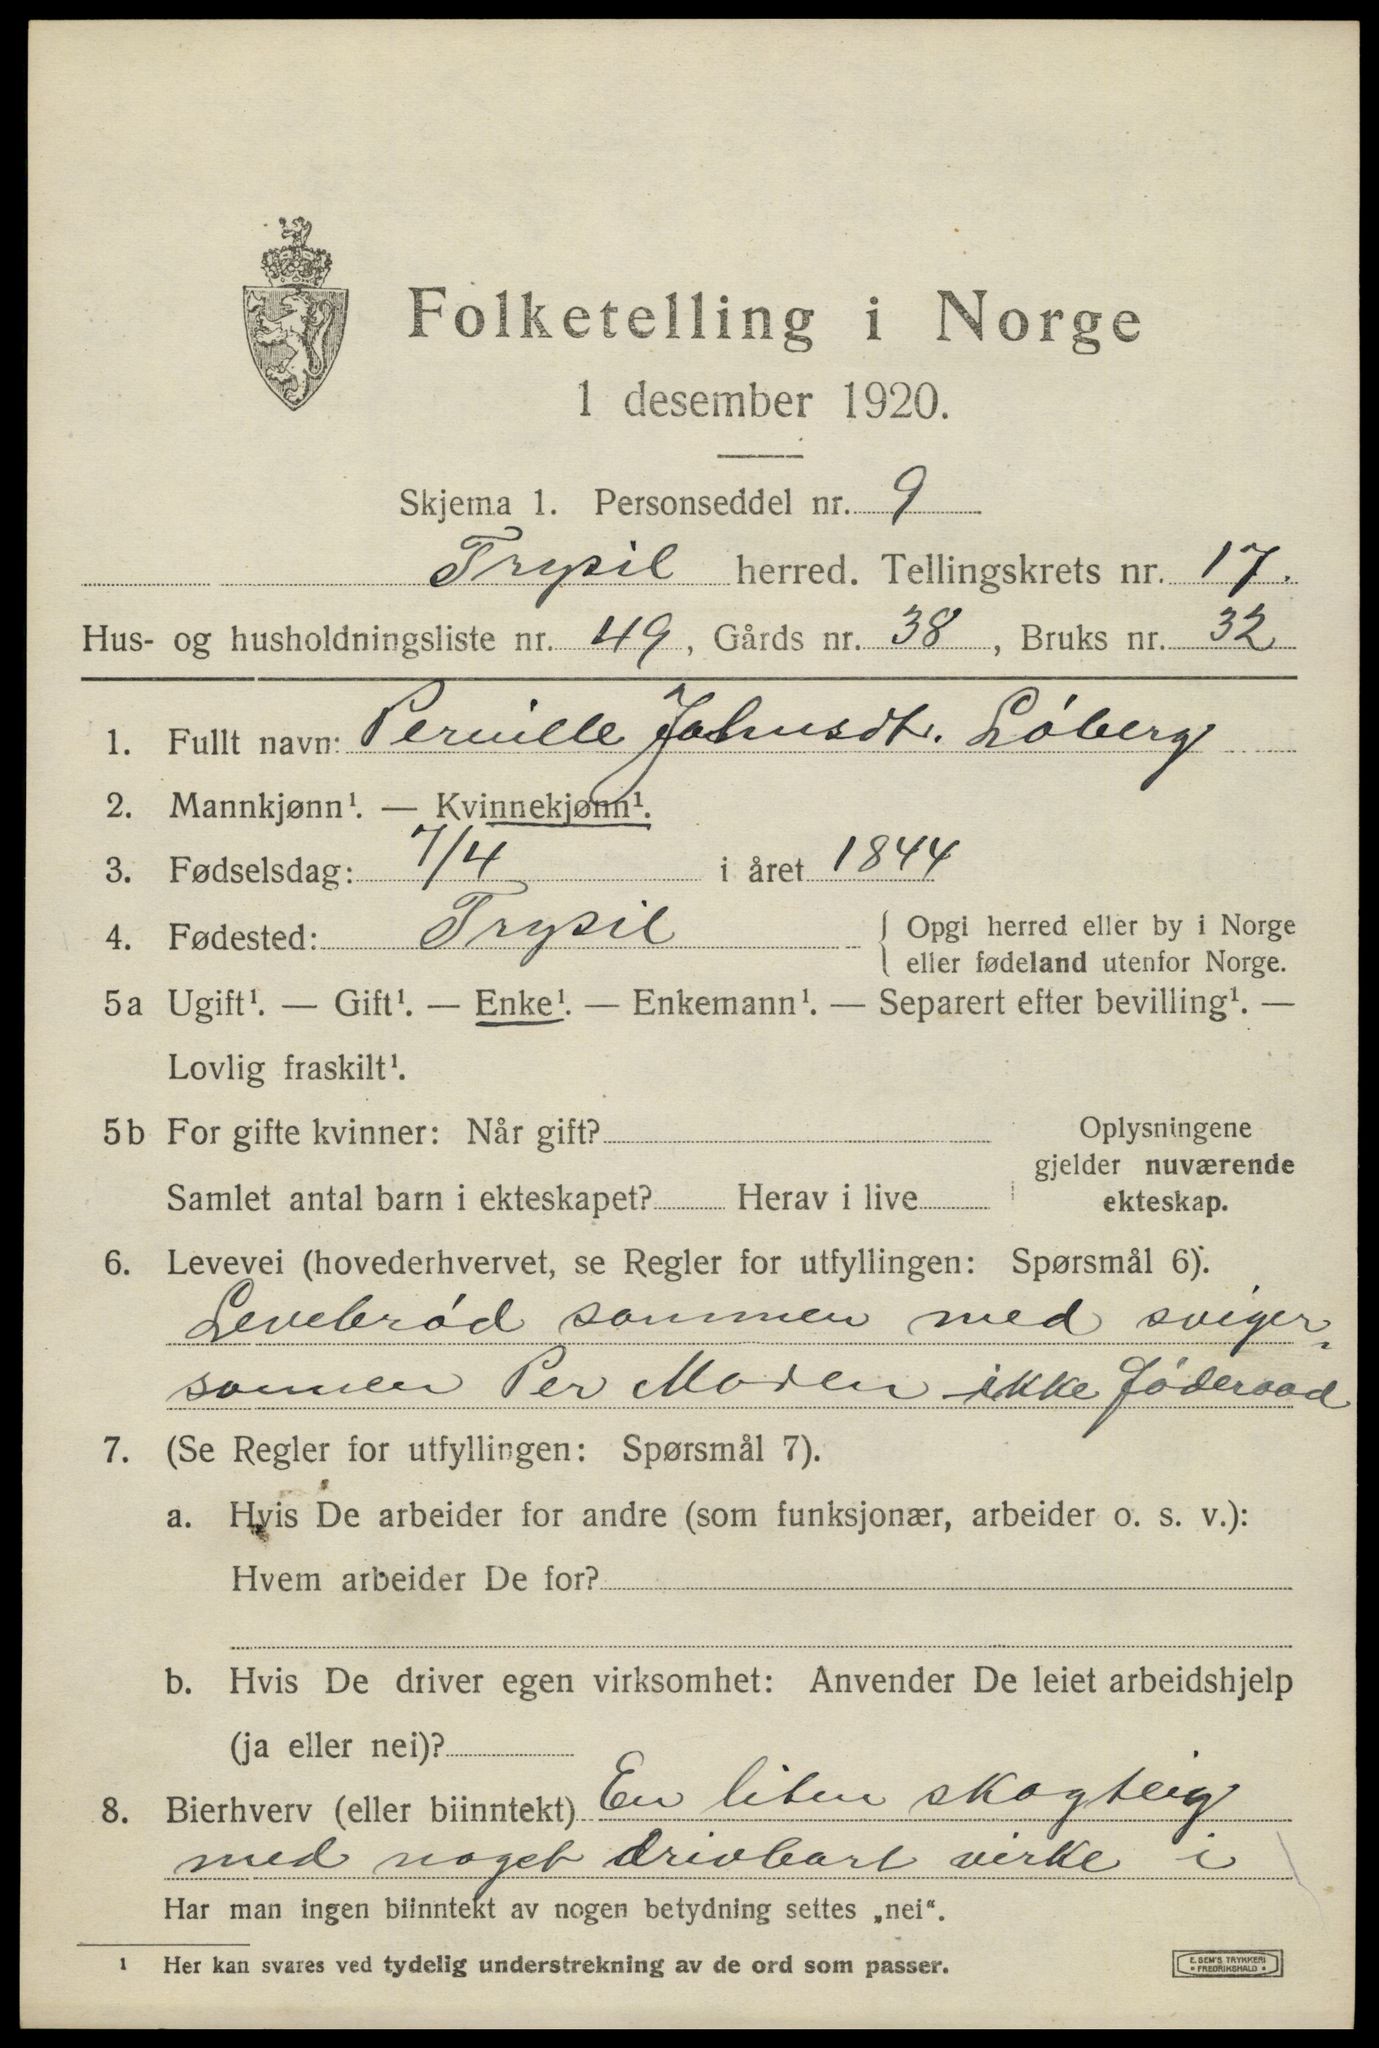 Folketelling i Norge
1 desember 1920.
Skjema 1. Personseddel nr. 9
Trysil herred. Tellingskrets nr. 17.
Hus- og husholdningsliste nr. 49, Gårds nr. 38, Bruks nr. 32
1. Fullt navn: Pernille Johnsdt. Löberg
2. Mannkjønn¹. — Kvinnekjønn¹.
3. Fødselsdag: 7/4 i året 1844
4. Fødested: Trysil { Opgi herred eller by i Norge
eller fødeland utenfor Norge.
5a Ugift¹. — Gift¹. — Enke¹. — Enkemann¹. — Separert efter bevilling¹. —
Lovlig fraskilt¹.
5b For gifte kvinner: Når gift?
Samlet antal barn i ekteskapet? Herav i live
Oplysningene
gjelder nuværende
ekteskap.
6. Levevei (hovederhvervet, se Regler for utfyllingen: Spørsmål 6).
Levebröd sammen med sviger-
sønnen Per Moren ikke föderaad
7. (Se Regler for utfyllingen: Spørsmål 7).
a. Hvis De arbeider for andre (som funksjonær, arbeider o. s. v.):
Hvem arbeider De for?
b. Hvis De driver egen virksomhet: Anvender De leiet arbeidshjelp
(ja eller nei)?
8. Bierhverv (eller biinntekt) En liten skogteig
med noget drivbart virke i
Har man ingen biinntekt av nogen betydning settes „nei".
¹ Her kan svares ved tydelig understrekning av de ord som passer.
E. SEM'S TRYKKERI
• FREDRIKSHALD •